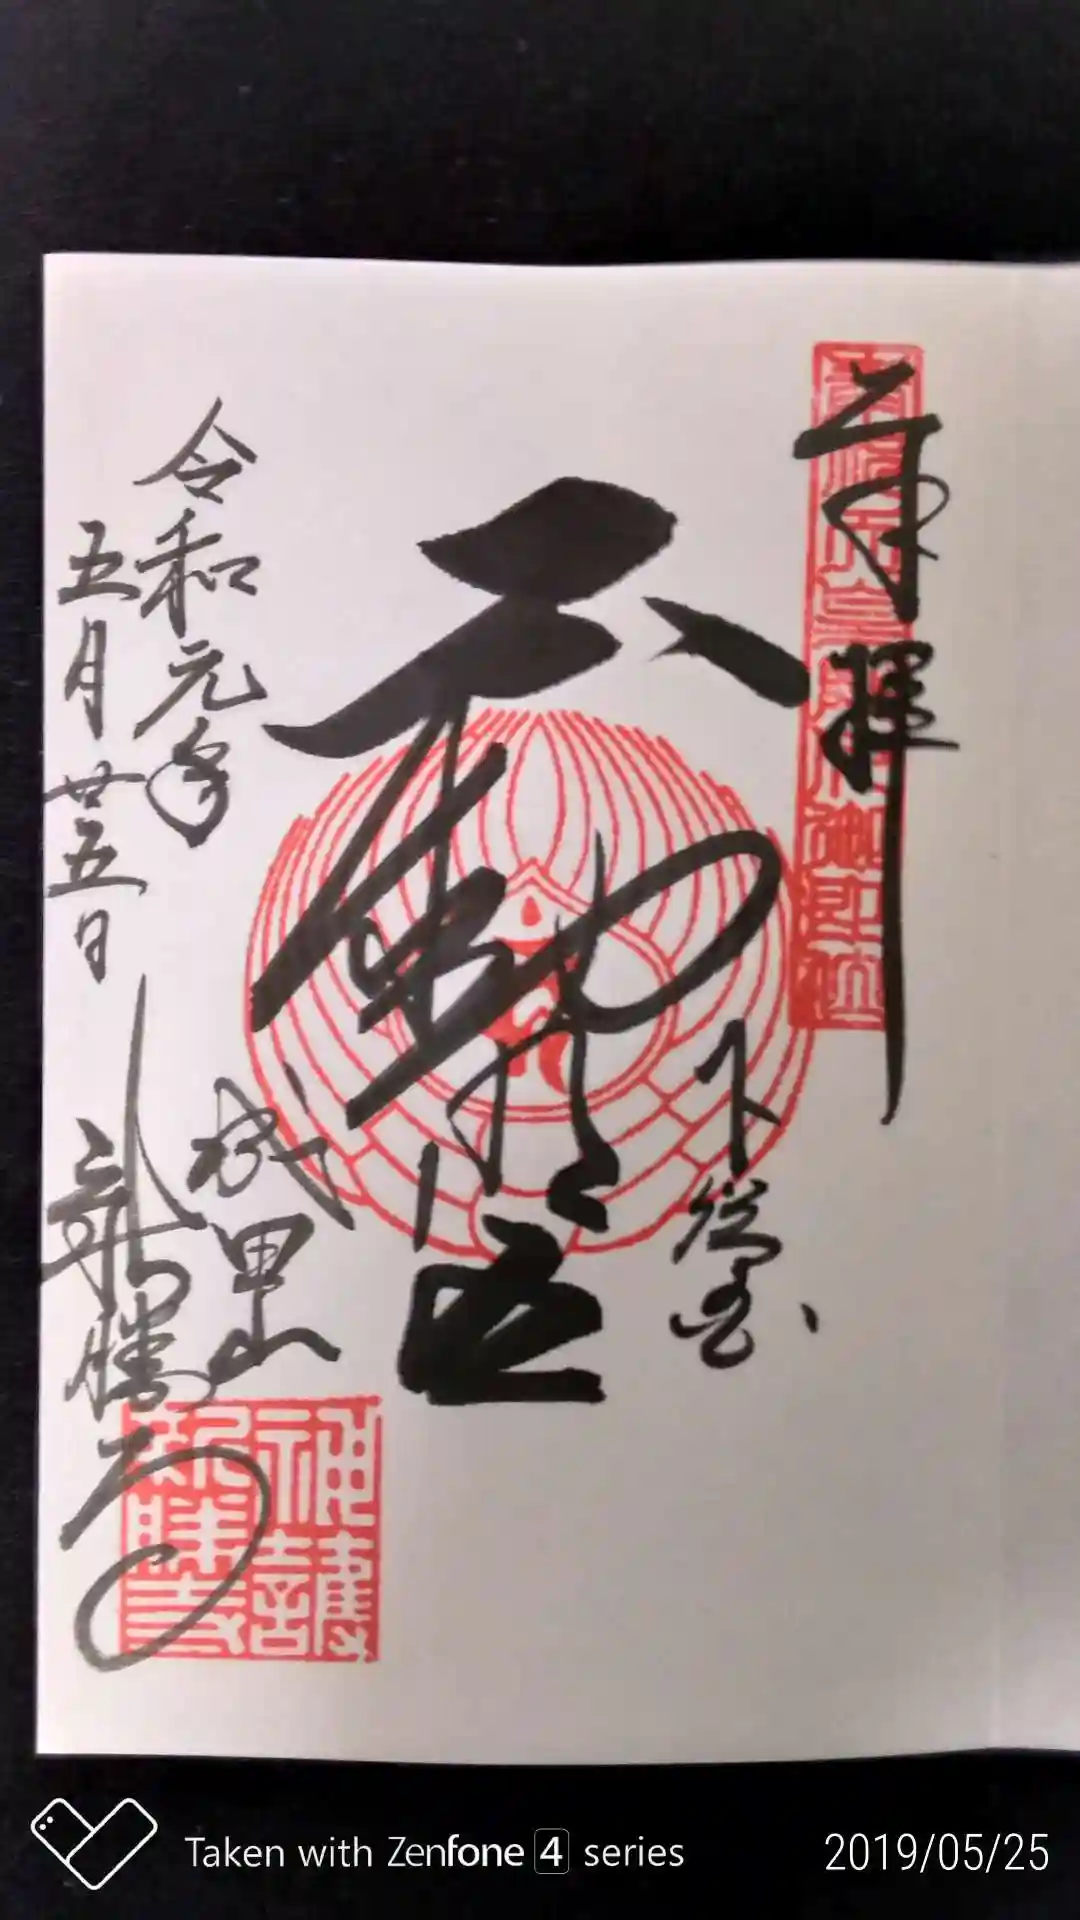 奉拝
下総国
不動明王
令和元年
五月廿五日
成田山
新勝寺
神護
新勝寺
Taken with Zenfone 4 series
2019/05/25